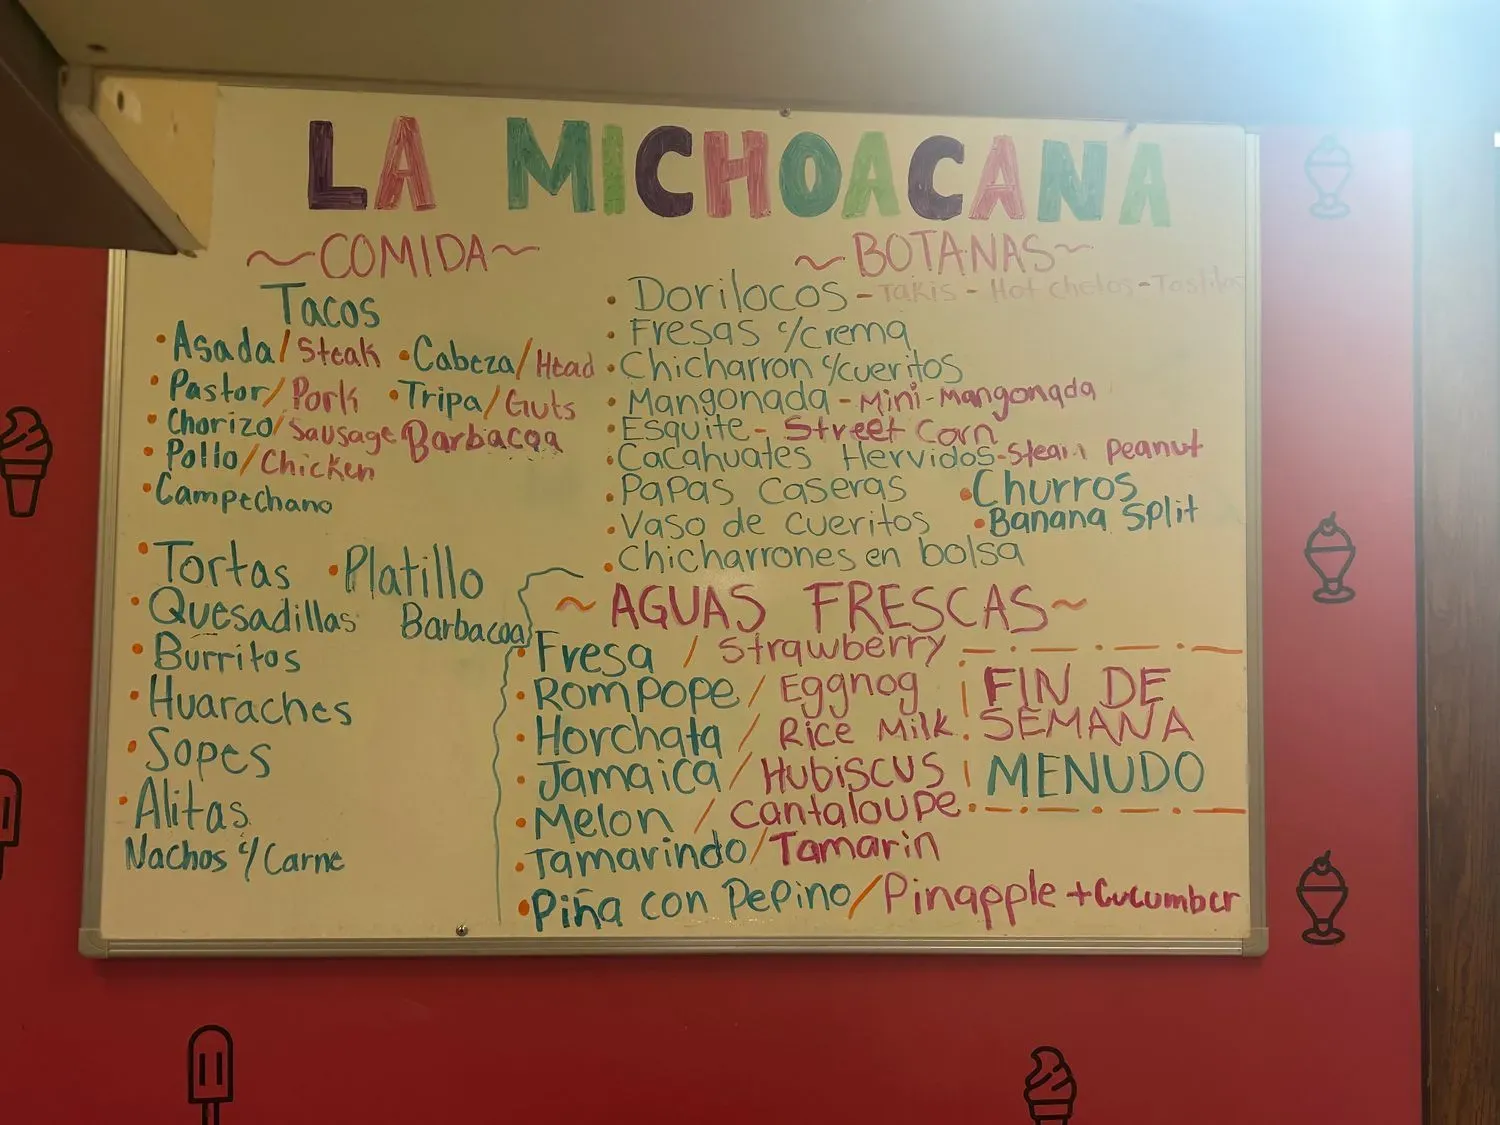 LA MICHOACANA
~COMIDA~
Tacos
• Asada/Steak • Cabeza/Head
• Pastor/Pork • Tripa/Guts
• Chorizo/Sausage Barbacoa
• Pollo/Chicken
• Campechano
• Tortas • Platillo
• Quesadillas Barbacoa
• Burritos
• Huaraches
• Sopes
• Alitas
Nachos c/Carne
~BOTANAS~
• Dorilocos - Takis - Hot chetos - Tostitos
• Fresas c/crema
• Chicharron c/cueritos
• Mangonada - Mini-Mangonada
• Esquite - Street Corn
• Cacahuates Hervidos - Steam Peanut
• Papas Caseras • Churros
• Vaso de cueritos • Banana Split
• Chicharrones en bolsa
~AGUAS FRESCAS~
• Fresa / Strawberry
• Rompope / Eggnog
• Horchata / Rice Milk
• Jamaica / Hubiscus
• Melon / Cantaloupe
• Tamarindo/Tamarin
• Piña con Pepino/Pinapple + Cucumber
FIN DE
SEMANA
MENUDO